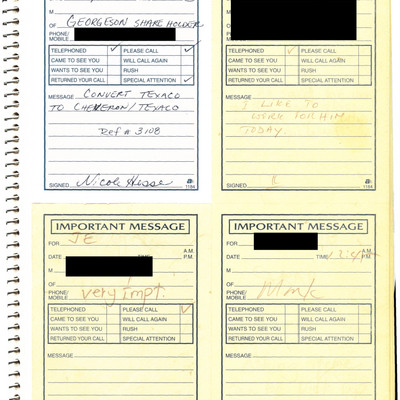 OF GEORGESON SHARE HOLDER
PHONE/
MOBILE
TELEPHONED ✓ PLEASE CALL ✓
CAME TO SEE YOU WILL CALL AGAIN
WANTS TO SEE YOU RUSH
RETURNED YOUR CALL SPECIAL ATTENTION ✓
MESSAGE CONVERT TEXACO
TO CHEVERON/TEXACO
Ref # 3108
SIGNED Nicole Hesse
1184
PHONE/
MOBILE
TELEPHONED ✓ PLEASE CALL
CAME TO SEE YOU WILL CALL AGAIN
WANTS TO SEE YOU RUSH
RETURNED YOUR CALL SPECIAL ATTENTION
MESSAGE
I LIKE TO
WORK FOR HIM
TODAY.
SIGNED
1184
IMPORTANT MESSAGE
FOR JE
DATE TIME A.M.
P.M.
M
OF
PHONE/
MOBILE very impt.
TELEPHONED PLEASE CALL ✓
CAME TO SEE YOU WILL CALL AGAIN
WANTS TO SEE YOU RUSH
RETURNED YOUR CALL SPECIAL ATTENTION
MESSAGE
IMPORTANT MESSAGE
FOR
DATE TIME A.M.
P.M.
M
OF
PHONE/
MOBILE
TELEPHONED PLEASE CALL
CAME TO SEE YOU WILL CALL AGAIN
WANTS TO SEE YOU RUSH
RETURNED YOUR CALL SPECIAL ATTENTION
MESSAGE